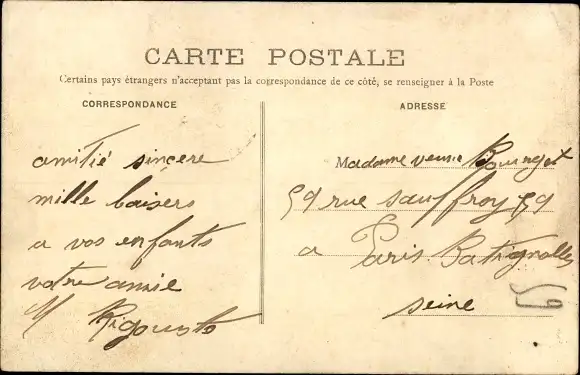 CARTE POSTALE
Certains pays étrangers n'acceptant pas la correspondance de ce côté, se renseigner à la Poste
CORRESPONDANCE
amitié sincère
mille baisers
a vos enfants
votre amie
ADRESSE
Madame veuve
59 rue Sauffroy 59
a Paris Batignolles
seine